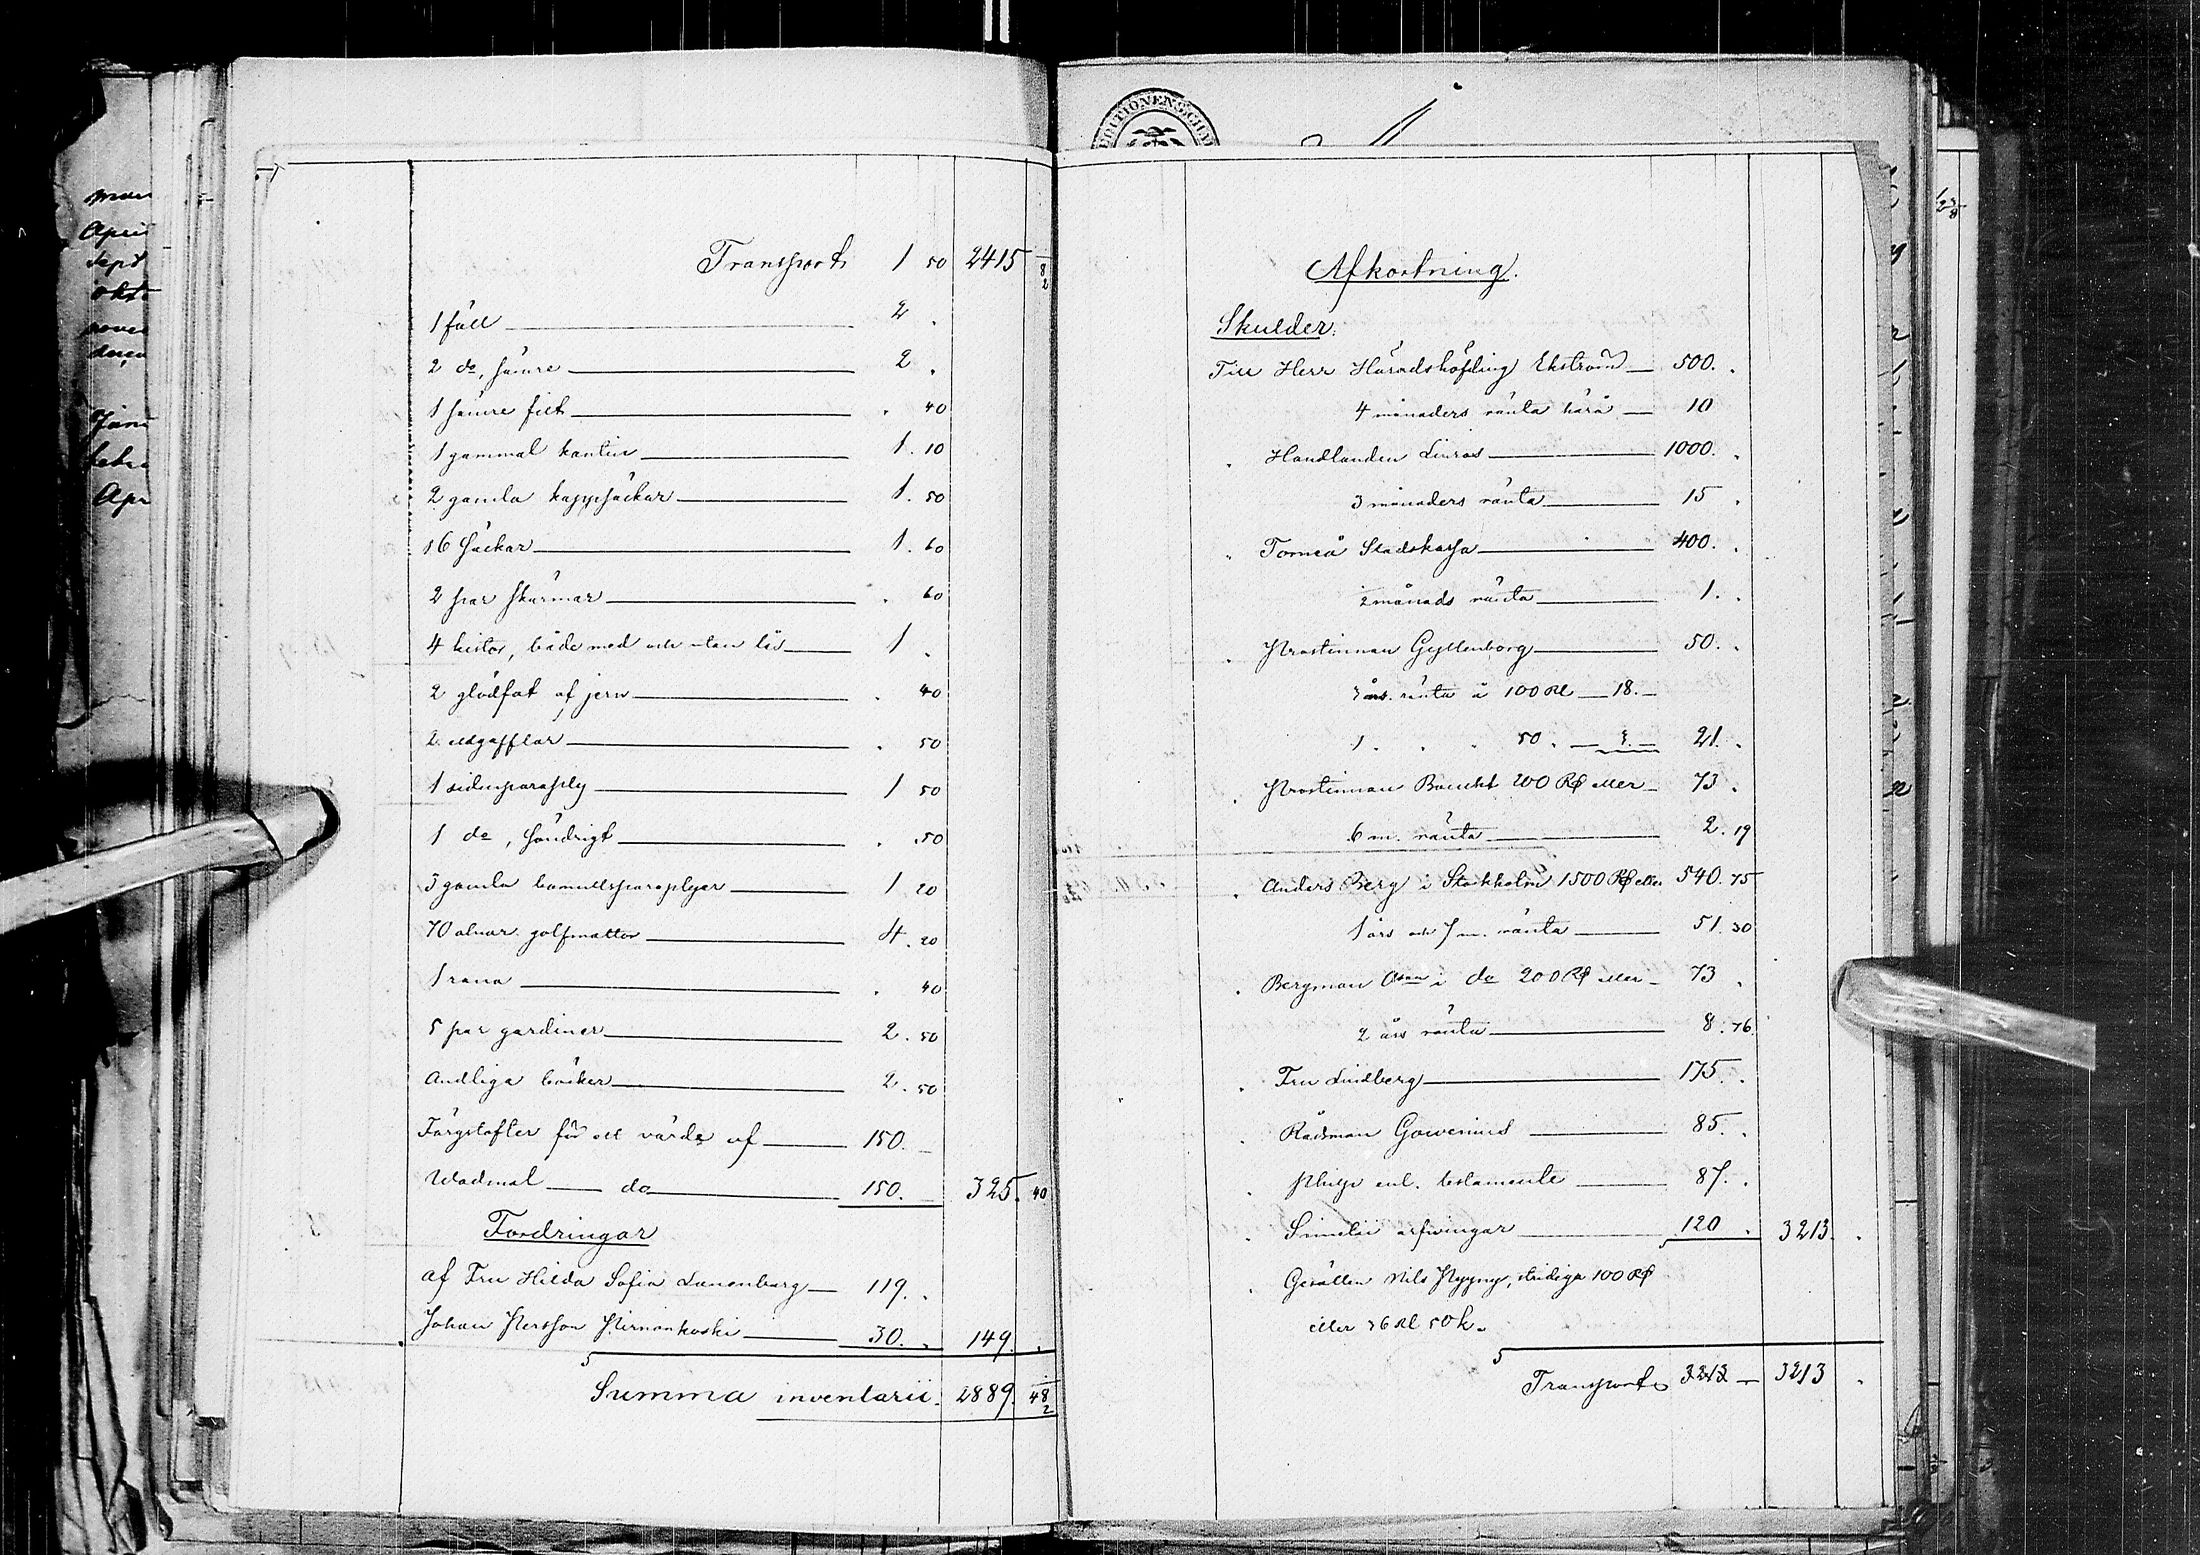 Transport 1 50 2415 8/2
1 fäll 2 .
2 do, sämre 2 .
1 sämre filt . 40
1 gammal kantin 1. 10
2 gamla kappsäckar 1. 50
16 säckar 1. 60
2 par skärmar . 60
4 kistor, både med och utan lås 1 .
2 glödfat af jern . 40
2 eldgafflar . 50
1 sidenparaply 1 50
1 do, söndrigt . 50
3 gamla bomullsparaplyer 1 20
70 alnar golfmattor 4. 20
1 rana . 40
5 par gardiner 2. 50
Andliga böcker 2. 50
Färgstofter för ett värde af 150. –
Wadmal do 150. 325. 40
Fordringar
af Fru Hilda Sofia Lunenberg 119. .
Johan Persson Kirnankoski 30. . 149. .
Summa inventarii. 2889. 48/2
Afkortning.
Skulder:
Till Herr Häradshöfding Ekström 500. .
4 månaders ränta härå 10
" Handlanden Linros 1000. .
3 månaders ränta 15 .
" Torneå Stadskassa 400. .
2 månads ränta 1. .
" Prostinnan Gyllenborg 50. .
3 års ränta å 100 Rl 18. –
1 " " 50 " 3. – 21. .
" Prostinnan Boucht 200 Rß eller 73 .
6 m. ränta 2. 19
" Anders Berg i Stockholm 1500 Rß eller 540. 75
1 års och 7 m. ränta 51. 30
" Bergman i do 200 Rß eller 73 .
2 års ränta 8. 76
" Fru Lindberg 175. .
" Rådman Gowenius 85. .
" enl. testamente 87. .
" Simelii arfvingar 120 . 3213. .
" Gesällen Nils Nygny, stridiga 100 Rß
eller 36 Rl 50 k.
Transport 3213 – 3213 .